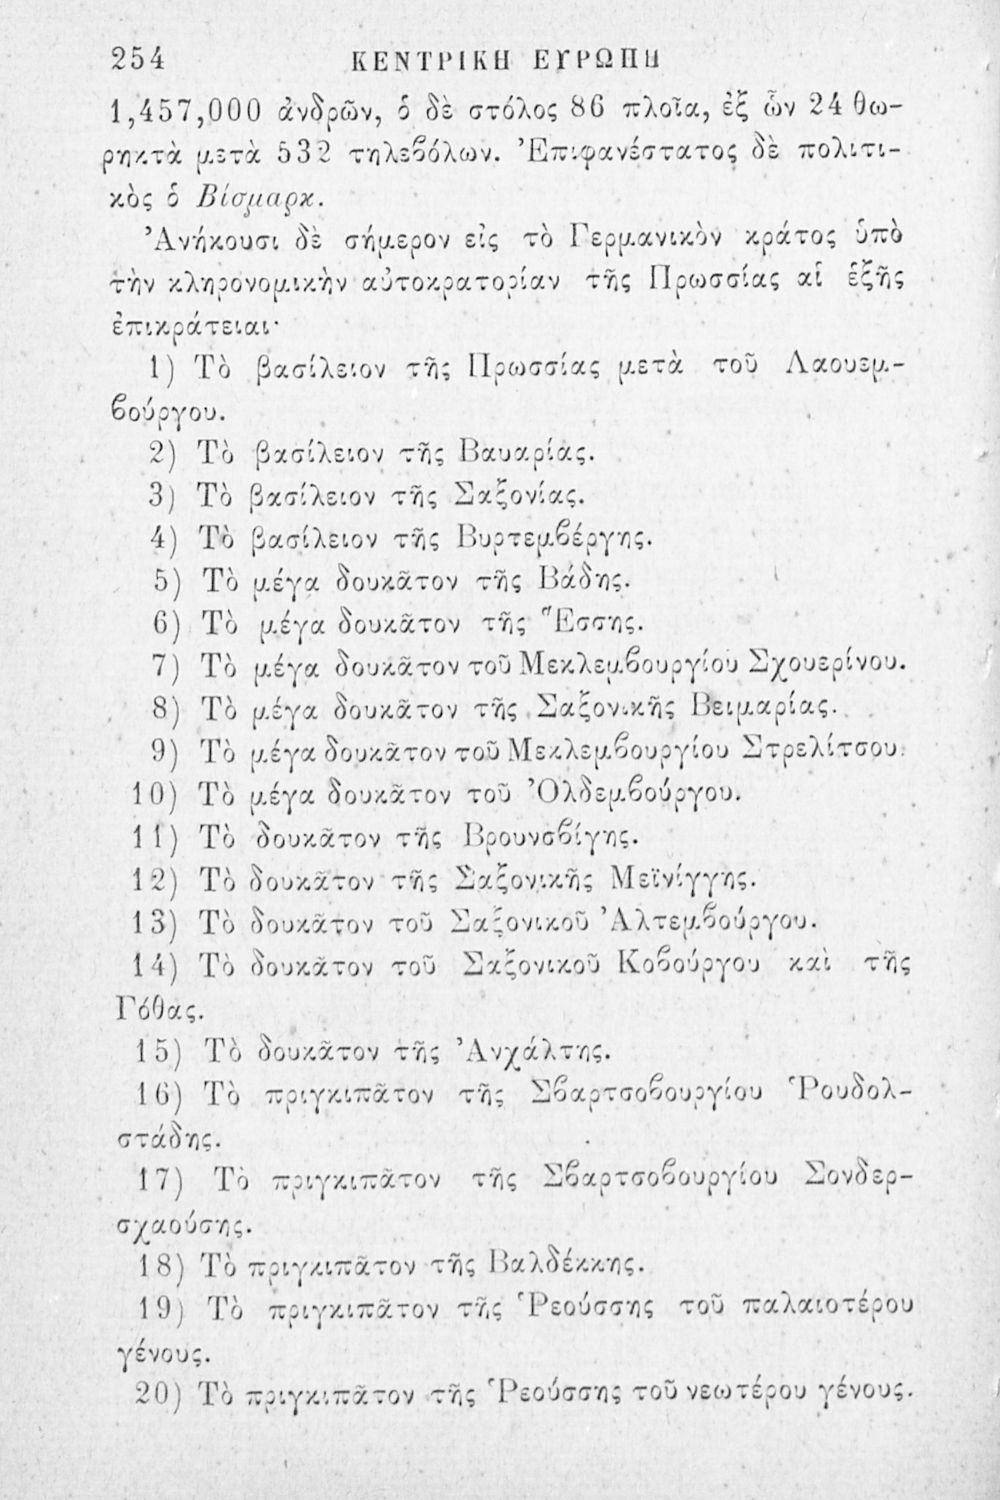 254 ΚΕΝΤΡΙΚΗ ΕΥΡΩΠΗ
1,457,000 ἀνδρῶν, ὁ δὲ στόλος 86 πλοῖα, ἐξ ὧν 24 θω-
ρηκτὰ μετὰ 532 τηλεβόλων. Ἐπιφανέστατος δὲ πολιτι-
κὸς ὁ Βίσμαρκ.
Ἀνήκουσι δὲ σήμερον εἰς τὸ Γερμανικὸν κράτος ὑπὸ
τὴν κληρονομικὴν αὐτοκρατορίαν τῆς Πρωσσίας αἱ ἑξῆς
ἐπικράτειαι·
1) Τὸ βασίλειον τῆς Πρωσσίας μετὰ τοῦ Λαουεμ-
βούργου.
2) Τὸ βασίλειον τῆς Βαυαρίας.
3) Τὸ βασίλειον τῆς Σαξονίας.
4) Τὸ βασίλειον τῆς Βυρτεμβέργης.
5) Τὸ μέγα δουκᾶτον τῆς Βάδης.
6) Τὸ μέγα δουκᾶτον τῆς Ἕσσης.
7) Τὸ μέγα δουκᾶτον τοῦ Μεκλεμβουργίου Σχουερίνου.
8) Τὸ μέγα δουκᾶτον τῆς Σαξονικῆς Βειμαρίας.
9) Τὸ μέγα δουκᾶτον τοῦ Μεκλεμβουργίου Στρελίτσου.
10) Τὸ μέγα δουκᾶτον τοῦ Ὀλδεμβούργου.
11) Τὸ δουκᾶτον τῆς Βρουνσβίγης.
12) Τὸ δουκᾶτον τῆς Σαξονικῆς Μεϊνίγγης.
13) Τὸ δουκᾶτον τοῦ Σαξονικοῦ Ἀλτεμβούργου.
14) Τὸ δουκᾶτον τοῦ Σαξονικοῦ Κοβούργου καὶ τῆς
Γόθας.
15) Τὸ δουκᾶτον τῆς Ἀνχάλτης.
16) Τὸ πριγκιπᾶτον τῆς Σβαρτσοβουργίου Ῥουδολ-
στάδης.
17) Τὸ πριγκιπᾶτον τῆς Σβαρτσοβουργίου Σονδερ-
σχαούσης.
18) Τὸ πριγκιπᾶτον τῆς Βαλδέκκης.
19) Τὸ πριγκιπᾶτον τῆς Ῥεούσσης τοῦ παλαιοτέρου
γένους.
20) Τὸ πριγκιπᾶτον τῆς Ῥεούσσης τοῦ νεωτέρου γένους.